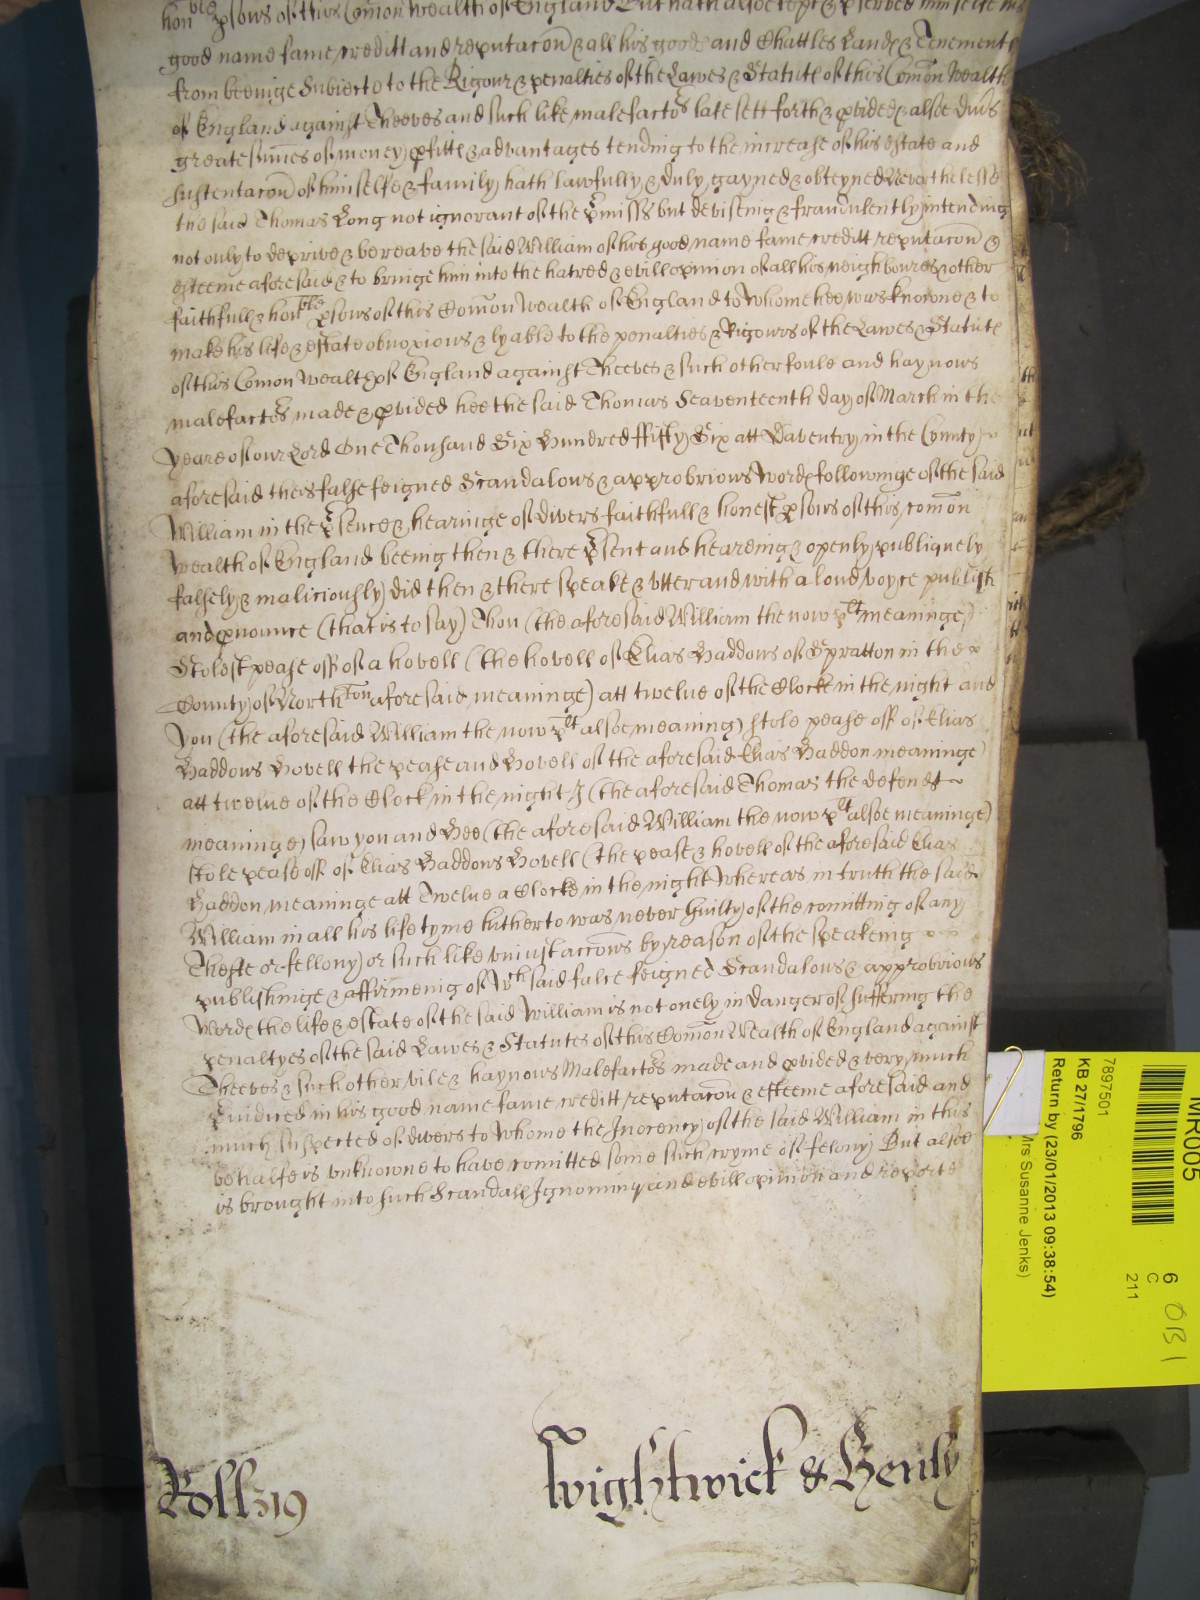 hon ble psons of this Com̄on wealth of England But hath alsoe kept & pserved himselfe his
good name fame creditt and reputac̄on & all his goods and Chattles Landes & Tenements
from beeinge Subiect to to the Rigour & penalties of the Lawes & Statutes of this Com̄on Wealth
of England against Theeves and such like malefactors late sett forth & pvided & alsoe divs
greate sum̄es of money pfitts & advantages tending to the increase of his estate and
sustentac̄on of himselfe & family hath lawfully & duly gayned & obteyned Nevertheless
the said Thomas Long not ignorant of the pmisses but deviseing & fraudulently intending
not only to deprive & bereave the said William of his good name fame creditt reputac̄on &
esteeme aforesaid & to bringe him into the hatred & evill opinion of all his neighboures & other
faithfull & hon ble psons of this Com̄on Wealth of England to Whome hee was knowne & to
make his life & estate obnoxious & lyable to the penalties & Rigours of the Lawes & Statutes
of this Com̄on Wealth of England against Theeves & such other foule and haynous
malefactors made & pvided hee the said Thomas Seaventeenth day of March in the
yeare of our Lord One Thousand Six Hundred ffifty Six att Daventry in the County
aforesaid theis false feigned Scandalous & approbrious Words followinge of the said
William in the psence & hearinge of divers faithfull & honest psons of this com̄on
Wealth of England beeing then & there psent and heareing & openly publiquely
falsely & maliciously did then & there speake & utter and with a loud voyce publish
and pnounce (that is to say) Thou (the aforesaid William the now plt meaninge)
Stolest pease off of a hovell (the hovell of Elias Haddons of Spratton in the
County of North ton aforesaid meaninge) att twelve of the Clock in the night and
you (the aforesaid William the now plt alsoe meaning) stole pease off of Elias
Haddons Hovell the pease and Hovell of the aforesaid Elias Haddon meaninge)
att twelve of the Clock in the night I (the aforesaid Thomas the defendt
meaninge) saw you and Hee (the aforesaid William the now plt alsoe meaninge)
stole pease off of Elias Haddons Hovell (the pease & hovell of the aforesaid Elias
Haddon meaninge att Twelve a Clocke in the night Whereas in truth the said
William in all his life tyme hitherto was never Guilty of the comitting of any
Thefte or fellony or such like uniust acc̄ons by reason of the speakeing
publishinge & affirmeing of wch said false feigned Scandalous & approbrious
Words the life & estate of the said William is not onely in danger of suffering the
penaltyes of the said Lawes & Statutes of this Com̄on Wealth of England against
Theeves & such other vile & haynous Malefactors made and pvided & very much
preiudiced in his good name fame creditt reputac̄on & esteeme aforesaid and
much suspected of divers to Whome the Inocency of the said William in this
behalfe is unknowne to have comitted some such cryme of felony But alsoe
is brought into such Scandall Ignominy and evill opinion and reporte
Roll 319
Wightwick & Henly
MR005
7897501
KB 27/1796
Return by (23/01/2013 09:38:54)
Mrs Susanne Jenks)
6
C
211
OB 1